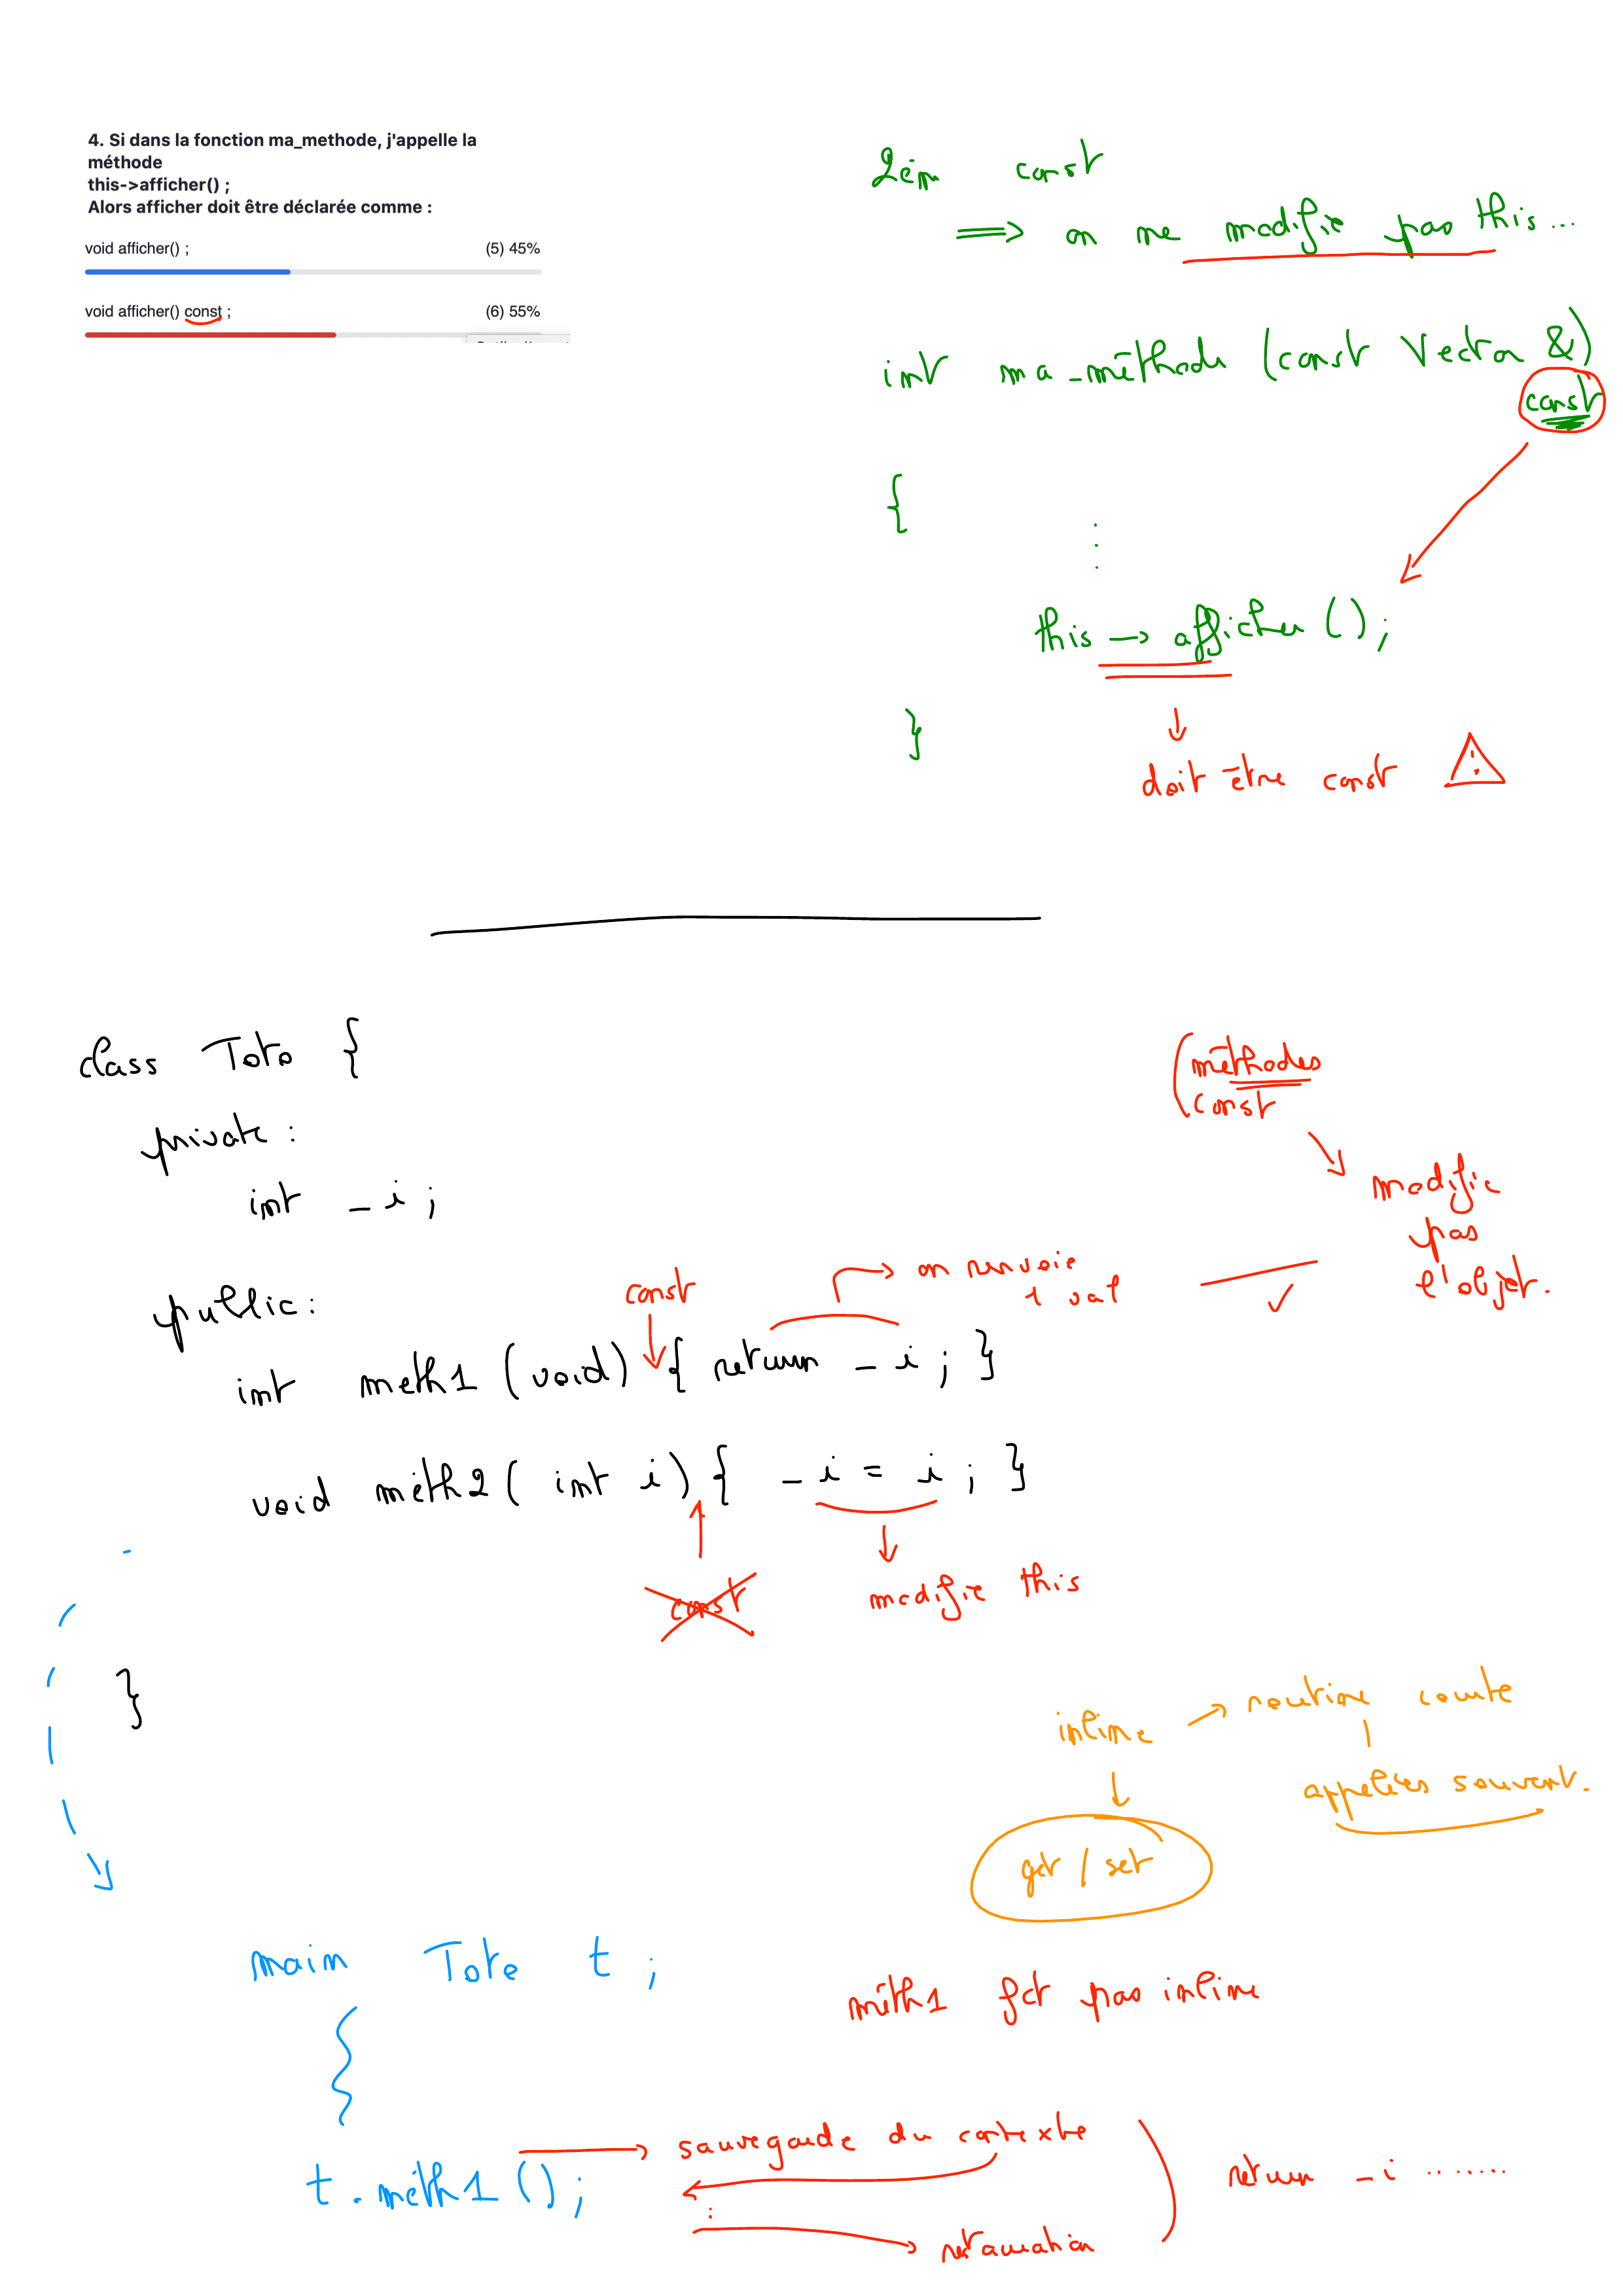 4. Si dans la fonction ma_methode, j'appelle la
méthode
this->afficher() ;
Alors afficher doit être déclarée comme :
void afficher() ; (5) 45%
void afficher() const ; (6) 55%
2èm const
⟹ on ne modifie pas this...
int ma_méthode (const Vector &)
const
{
⋮
this → afficher ();
}
↓
doit être const ⚠
class Toto {
private :
int _i ;
public :
int meth1 (void) { return _i ; }
const
on renvoie
1 val
✓
(méthodes
const
modifie
pas
l'objet.
void méth2 ( int i) { _i = i ; }
const
modifie this
}
inline → routine courte
appelées souvent.
get / set
main Toto t ;
méth1 fct pas inline
t.méth1 ();
sauvegarde du contexte
:
restauration
return _i .......